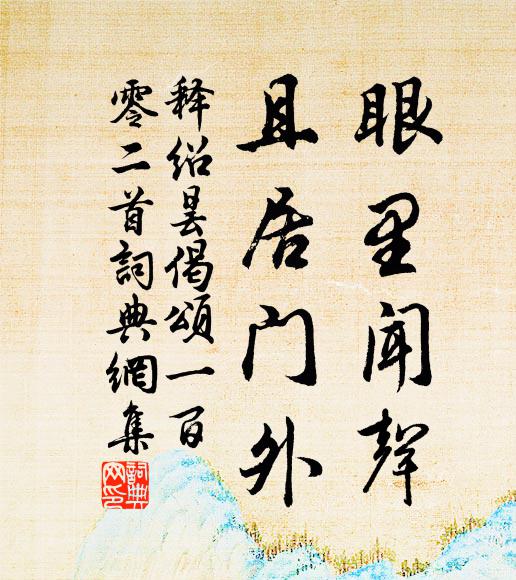 眼里闻聲
且居门外
释绍昙偈頌一百
零二首詞典網集
詞典網印